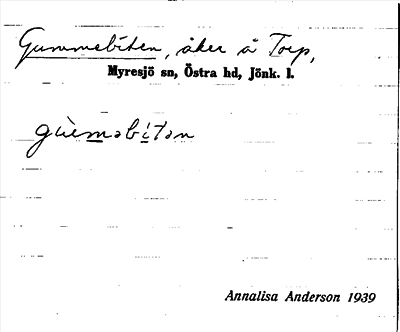 Gummebiten, åker å Torp,
Myresjö sn, Östra hd, Jönk. l.
gùeməbi̱tən
Annalisa Anderson 1939